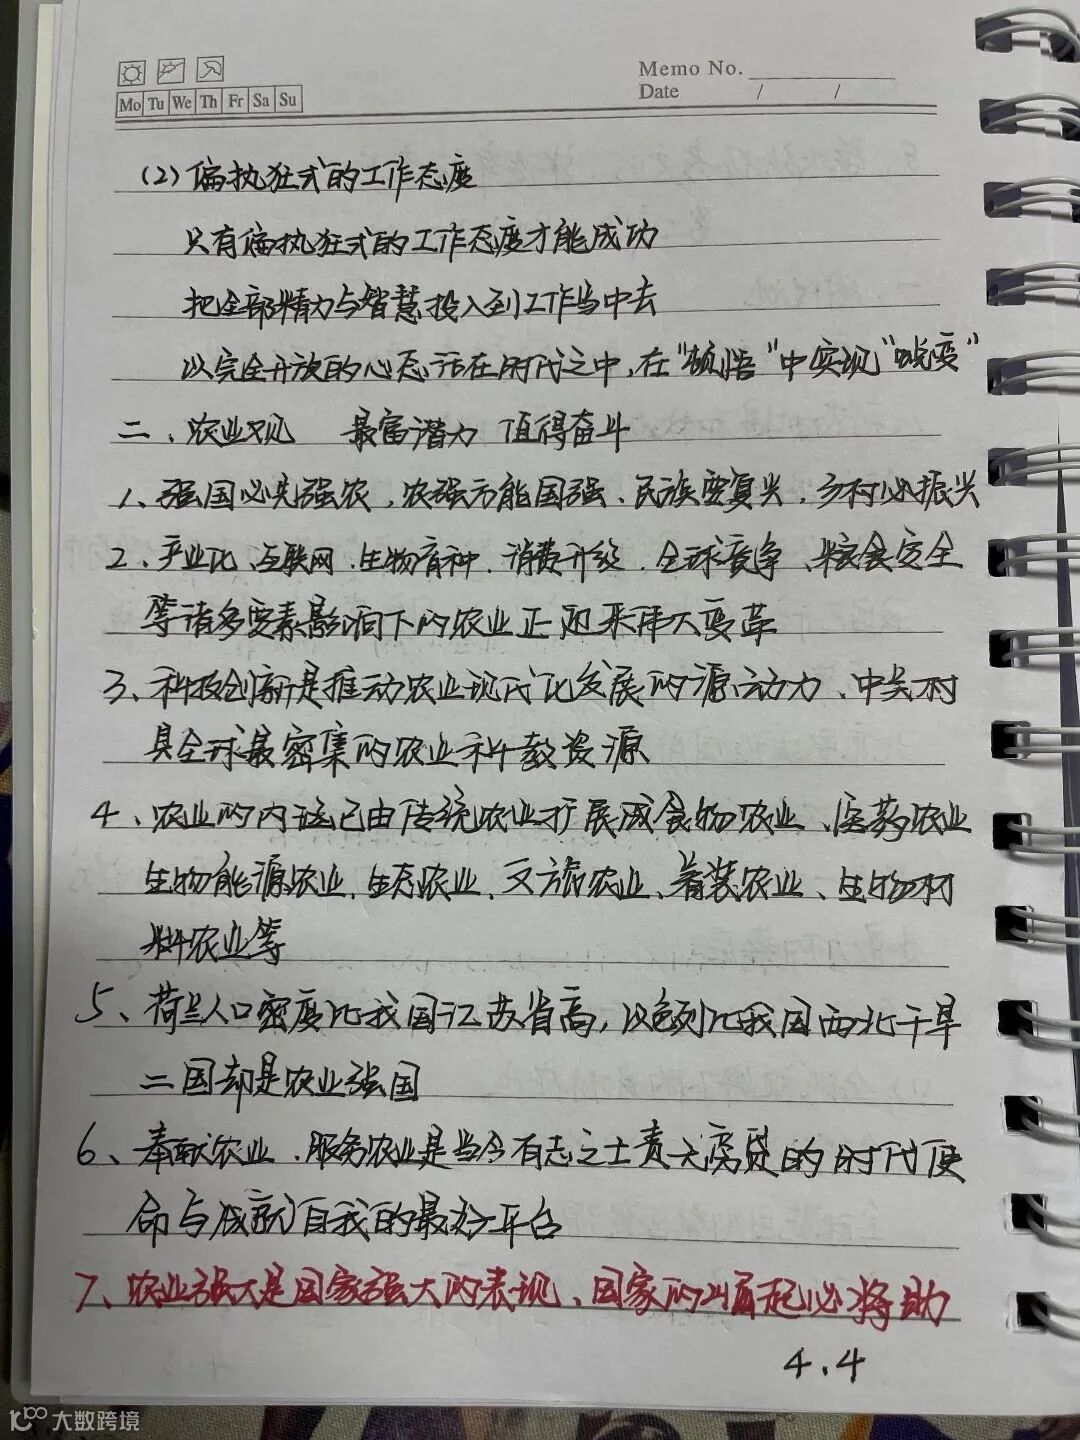 Memo No.
Mo Tu We Th Fr Sa Su
Date / /
(2)偏执狂式的工作态度
只有偏执狂式的工作态度才能成功
把全部精力与智慧投入到工作当中去
以完全开放的心态活在时代之中,在"顿悟"中实现"蜕变"
二、农业观 最富潜力 值得奋斗
1、强国必先强农,农强方能国强、民族要复兴,乡村必振兴
2、产业化、互联网、生物育种、消费升级、全球竞争、粮食安全
等诸多要素影响下的农业正迎来伟大变革
3、科技创新是推动农业现代化发展的源动力、中关村
具全球最密集的农业科教资源
4、农业的内涵已由传统农业扩展成食物农业、医药农业
生物能源农业、生态农业、文旅农业、着装农业、生物材
料农业等
5、荷兰人口密度比我国江苏省高,以色列比我国西北干旱
二国却是农业强国
6、奉献农业、服务农业是当今有志之士责无旁贷的时代使
命与成就自我的最好平台
7、农业强大是国家强大的表现、国家的崛起必将助
4.4
大数跨境